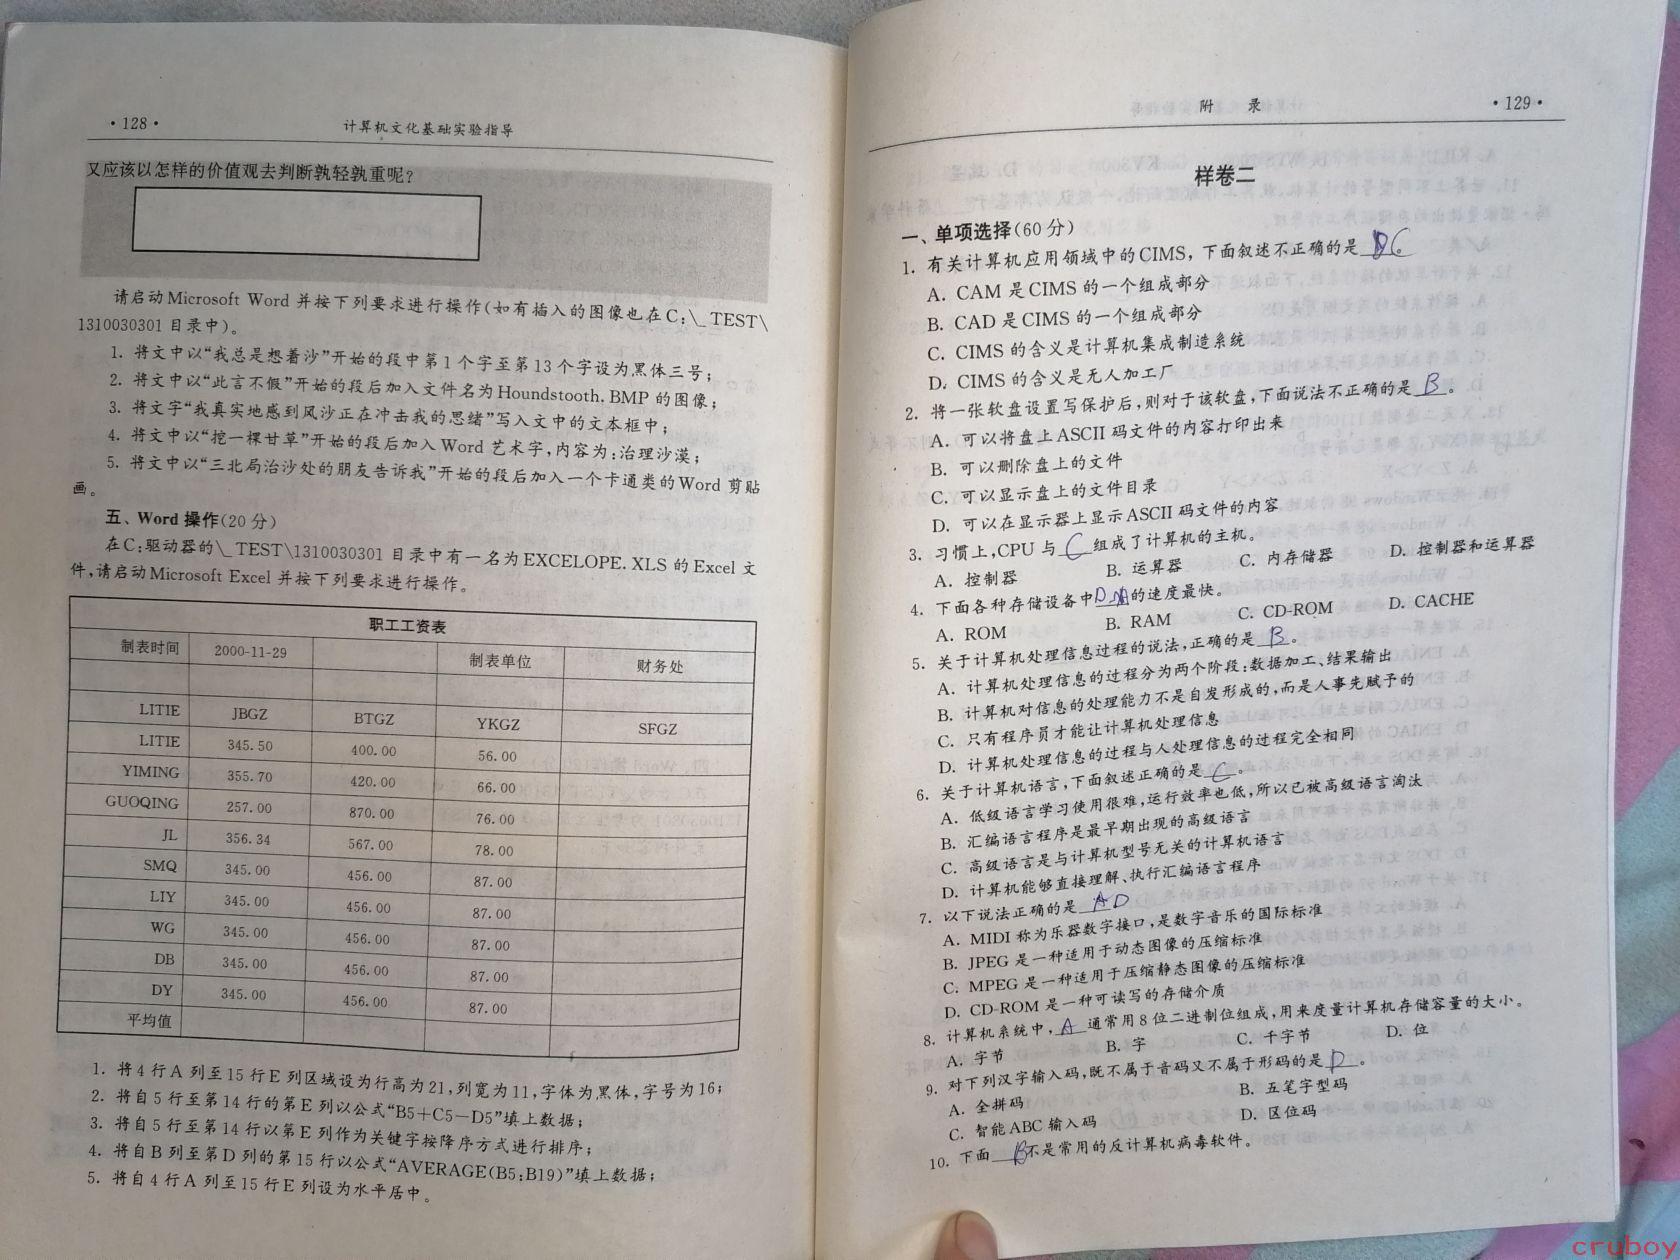 ·128·
计算机文化基础实验指导
又应该以怎样的价值观去判断孰轻孰重呢?
请启动Microsoft Word 并按下列要求进行操作(如有插入的图像也在C:\_TEST\
1310030301目录中)。
1. 将文中以“我总是想着沙”开始的段中第1个字至第13个字设为黑体三号;
2. 将文中以“此言不假”开始的段后加入文件名为Houndstooth.BMP的图像;
3. 将文字“我真实地感到风沙正在冲击我的思绪”写入文中的文本框中;
4. 将文中以“挖一棵甘草”开始的段后加入Word艺术字,内容为:治理沙漠;
5. 将文中以“三北局治沙处的朋友告诉我”开始的段后加入一个卡通类的Word剪贴
画。
五、Word操作(20分)
在C:驱动器的\_TEST\1310030301目录中有一名为EXCELOPE.XLS的Excel文
件,请启动Microsoft Excel并按下列要求进行操作。
职工工资表
制表时间 2000-11-29 制表单位 财务处
LITIE JBGZ BTGZ YKGZ SFGZ
LITIE 345.50 400.00 56.00
YIMING 355.70 420.00 66.00
GUOQING 257.00 870.00 76.00
JL 356.34 567.00 78.00
SMQ 345.00 456.00 87.00
LIY 345.00 456.00 87.00
WG 345.00 456.00 87.00
DB 345.00 456.00 87.00
DY 345.00 456.00 87.00
平均值
1. 将4行A列至15行E列区域设为行高为21,列宽为11,字体为黑体,字号为16;
2. 将自5行至第14行的第E列以公式“B5+C5−D5”填上数据;
3. 将自5行至第14行以第E列作为关键字按降序方式进行排序;
4. 将自B列至第D列的第15行以公式“AVERAGE(B5:B19)”填上数据;
5. 将自4行A列至15行E列设为水平居中。
附 录
·129·
样卷二
一、单项选择(60分)
1. 有关计算机应用领域中的CIMS,下面叙述不正确的是 C
A. CAM是CIMS的一个组成部分
B. CAD是CIMS的一个组成部分
C. CIMS的含义是计算机集成制造系统
D. CIMS的含义是无人加工厂
2. 将一张软盘设置写保护后,则对于该软盘,下面说法不正确的是 B 。
A. 可以将盘上ASCII码文件的内容打印出来
B. 可以删除盘上的文件
C. 可以显示盘上的文件目录
D. 可以在显示器上显示ASCII码文件的内容
3. 习惯上,CPU与 C 组成了计算机的主机。
A. 控制器 B. 运算器 C. 内存储器 D. 控制器和运算器
4. 下面各种存储设备中 D 的速度最快。
A. ROM B. RAM C. CD-ROM D. CACHE
5. 关于计算机处理信息过程的说法,正确的是 B 。
A. 计算机处理信息的过程分为两个阶段:数据加工、结果输出
B. 计算机对信息的处理能力不是自发形成的,而是人事先赋予的
C. 只有程序员才能让计算机处理信息
D. 计算机处理信息的过程与人处理信息的过程完全相同
6. 关于计算机语言,下面叙述正确的是 C 。
A. 低级语言学习使用很难,运行效率也低,所以已被高级语言淘汰
B. 汇编语言程序是最早期出现的高级语言
C. 高级语言是与计算机型号无关的计算机语言
D. 计算机能够直接理解、执行汇编语言程序
7. 以下说法正确的是 A D
A. MIDI称为乐器数字接口,是数字音乐的国际标准
B. JPEG是一种适用于动态图像的压缩标准
C. MPEG是一种适用于压缩静态图像的压缩标准
D. CD-ROM是一种可读写的存储介质
8. 计算机系统中, A 通常用8位二进制位组成,用来度量计算机存储容量的大小。
A. 字节 B. 字 C. 千字节 D. 位
9. 对下列汉字输入码,既不属于音码又不属于形码的是 D 。
A. 全拼码 B. 五笔字型码
C. 智能ABC输入码 D. 区位码
10. 下面 B 不是常用的反计算机病毒软件。
cruboy